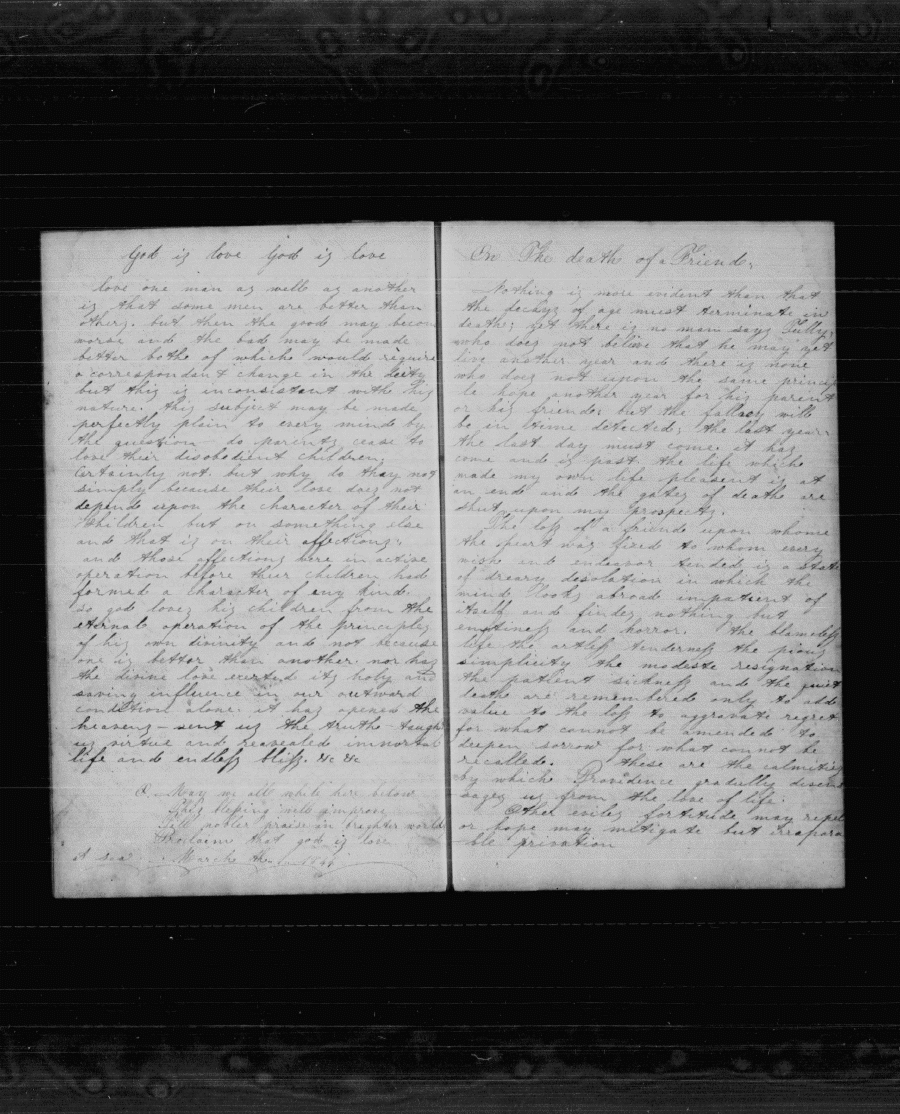 God is love God is love
love one man as well as another
is that some men are better than
others. but then the good may becom
worse and the bad may be made
better bothe of whiche would require
a correspondent change in the Deity
but this is inconsistant withe his
nature. this subject may be made
perfectly plain to every minde by
the question do parents cease to
love their disobedient children,
Certainly not. but why do thay not
simply because their love does not
depende upon the character of their
Children but on something else
and that is on their affections,
and those affections were in active
operation before their children had
formed a character of eny kind.
so god loves his children from the
eternal operation of the principles
of his own divinity and not because
one is better than another. nor has
the divine love exerted its holy and
saving influence in our outward
condition alone. it has opened the
heavens — sent us the truthe taugh
us virtue and reavealed immortal
life and endless bliss. &c &c
O. May we all while here below
This blessing
Till nobler praise in brighter worlds
Proclaim that god is love
at sea Marche the
On The death of a Friend,
Nothing is more evident than that
the decays of age must terminate in
deathe; yet there is no man says Tully,
who does not believe that he may yet
live another year and there is none
who does not upon the same princip
le hope another year for his parent
or his friende: but the fallacy will
be in time detected; the last year
the last day must come. it has
come and is past. the life whiche
made my own life pleasent is at
an end and the gates of deathe are
shut upon my prospects.
The loss of a friende upon whome
the heart was fixed to whom every
wish and endeavor tended is a state
of dreary desolation in which the
mind looks abroad impatient of
itself and finds nothing but
emptiness and horror. the blameless
life the artless tenderness the pious
simplicity the modeste resignation
the patient sickness and the quiet
deathe are remembered only to add
value to the loss to aggravate regret
for what cannot be amended to
deepen sorrow for what connot be
recalled. these are the calmities
by which Providence gradully disen
gages us from the love of life.
Other eviles fortitude may repel
or hope may mitigate but irrepara
ble privation